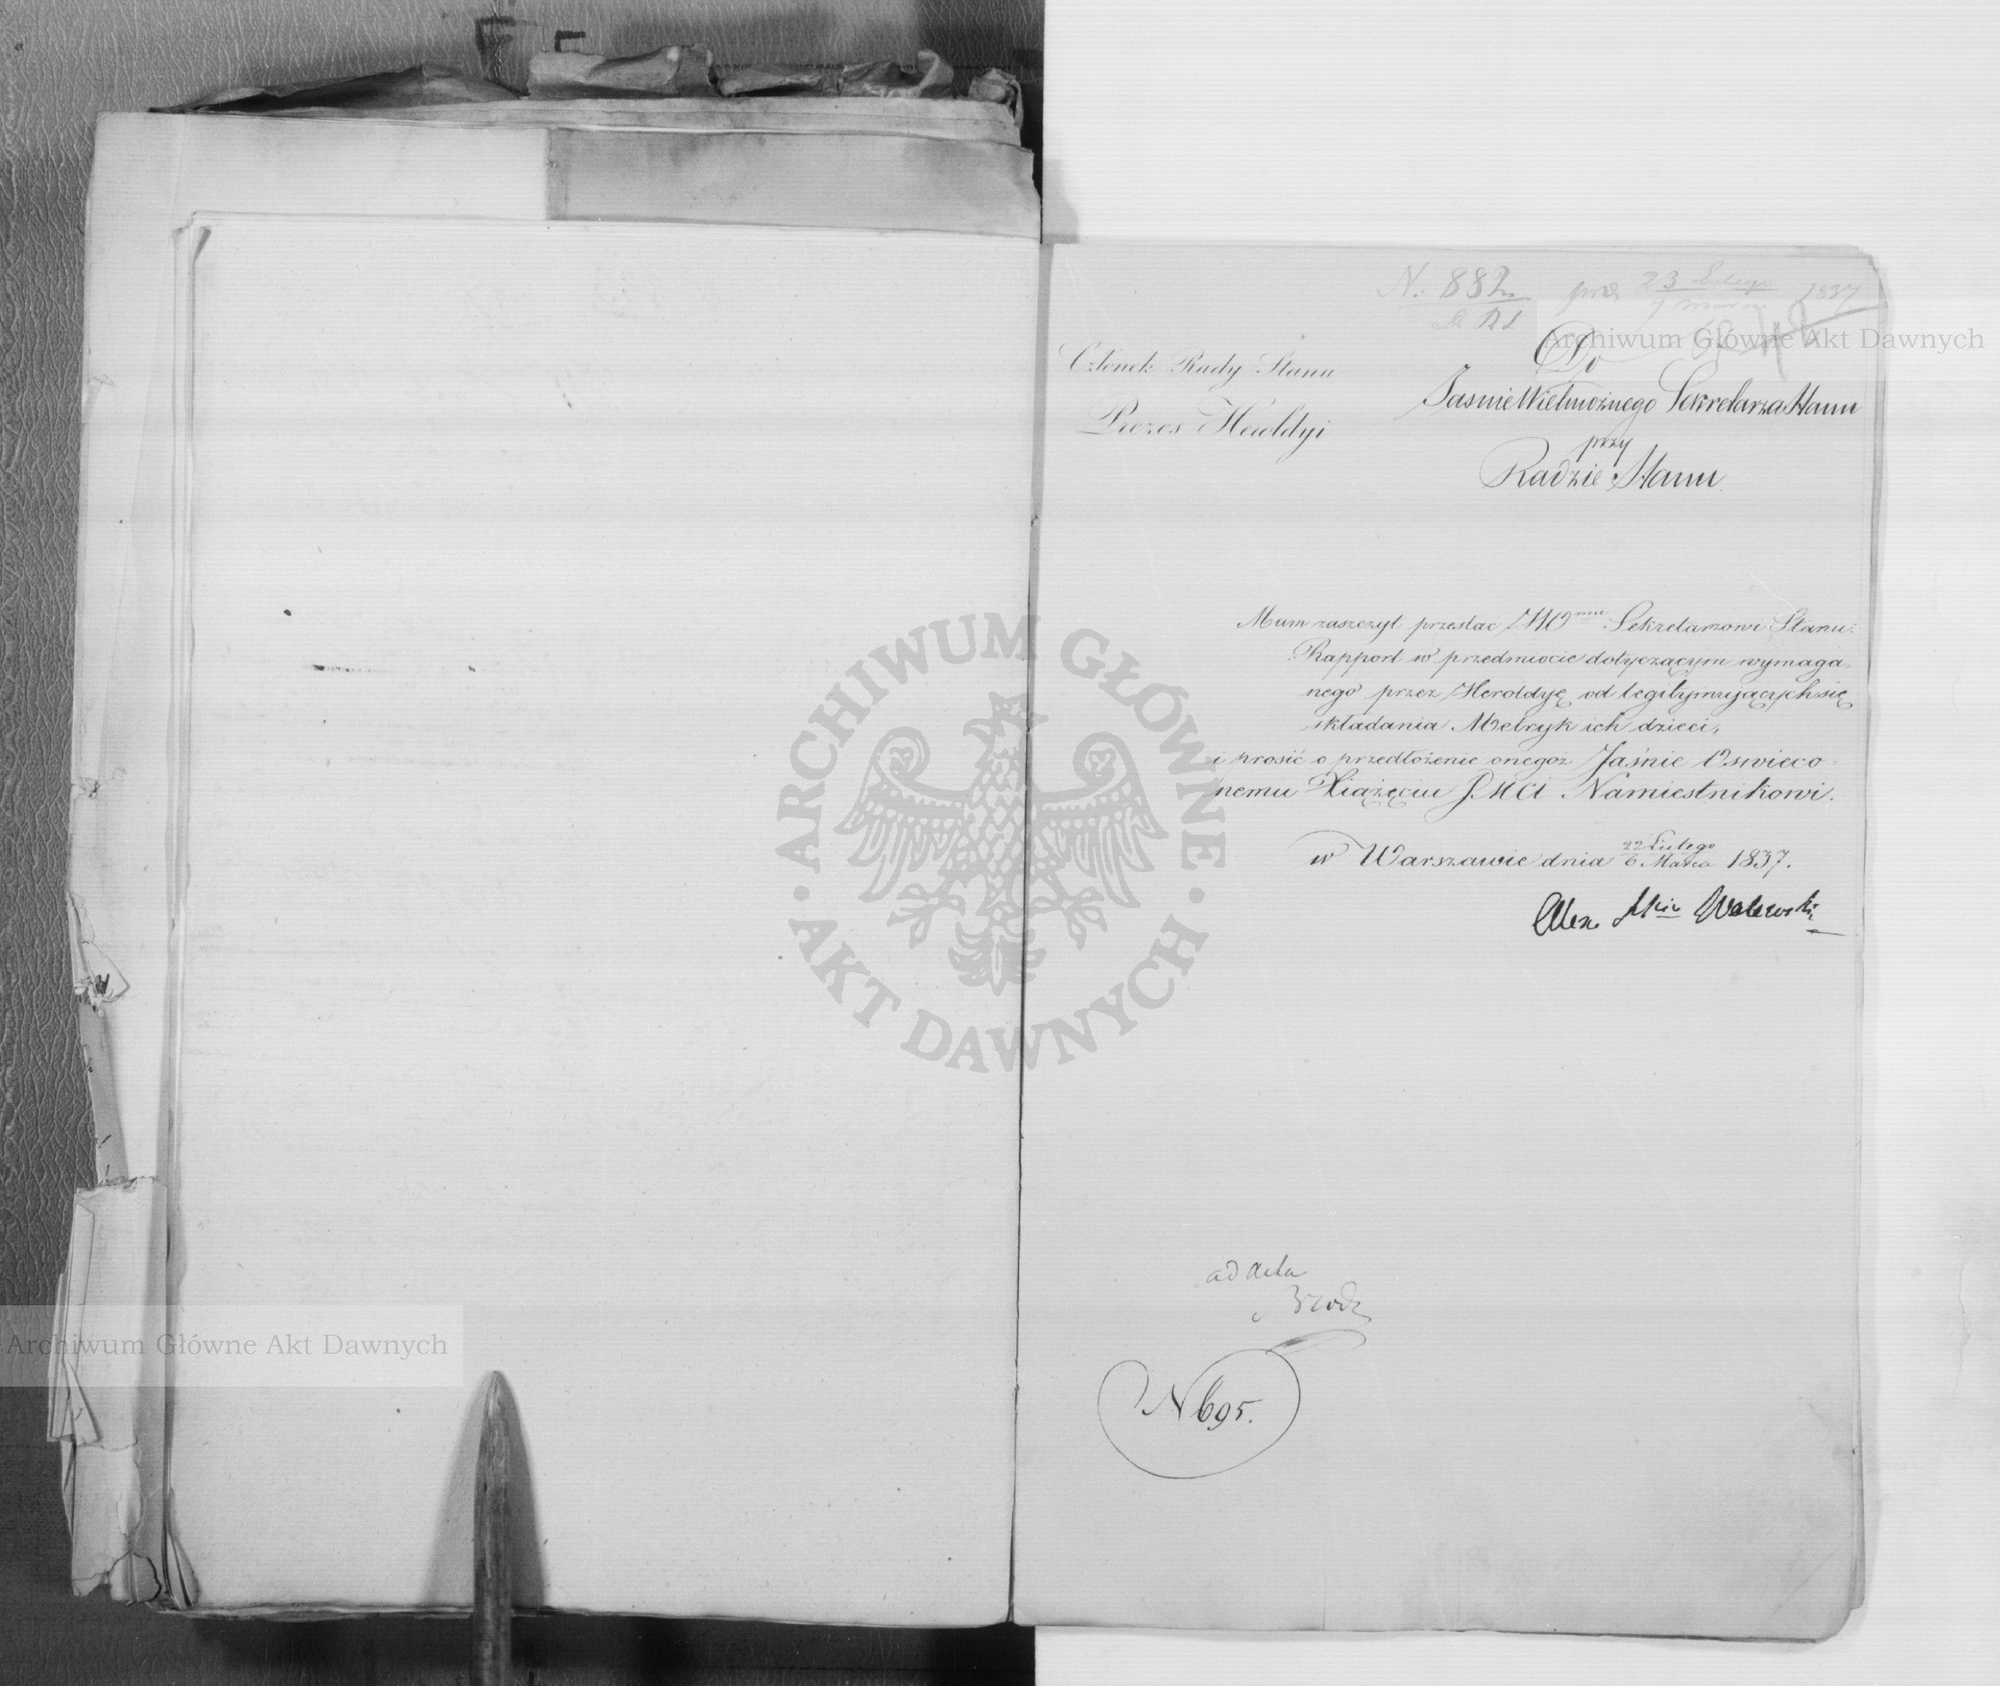 N. 882
prs 23 Lutego 1837
7 Marca
Członek Rady Stanu
Prezes Heroldyi
Do
Jaśnie Wielmożnego Sekretarza Stanu
przy
Radzie Stanu
Mam zaszczyt przesłać JWmu Sekretarzowi Stanu
Rapport w przedmiocie dotyczącym wymaga-
nego przez Heroldyę od legitymujących się
składania Metryk ich dzieci,
i prosić o przedłożenie onegoż Jaśnie Oświeco-
nemu Xiążęciu JMCi Namiestnikowi.
w Warszawie dnia 22 Lutego 1837.
6 Marca
Alex Walewski
ad acta
N 695.
Archiwum Główne Akt Dawnych
Archiwum Główne Akt Dawnych
ARCHIWUM GŁÓWNE · AKT DAWNYCH ·